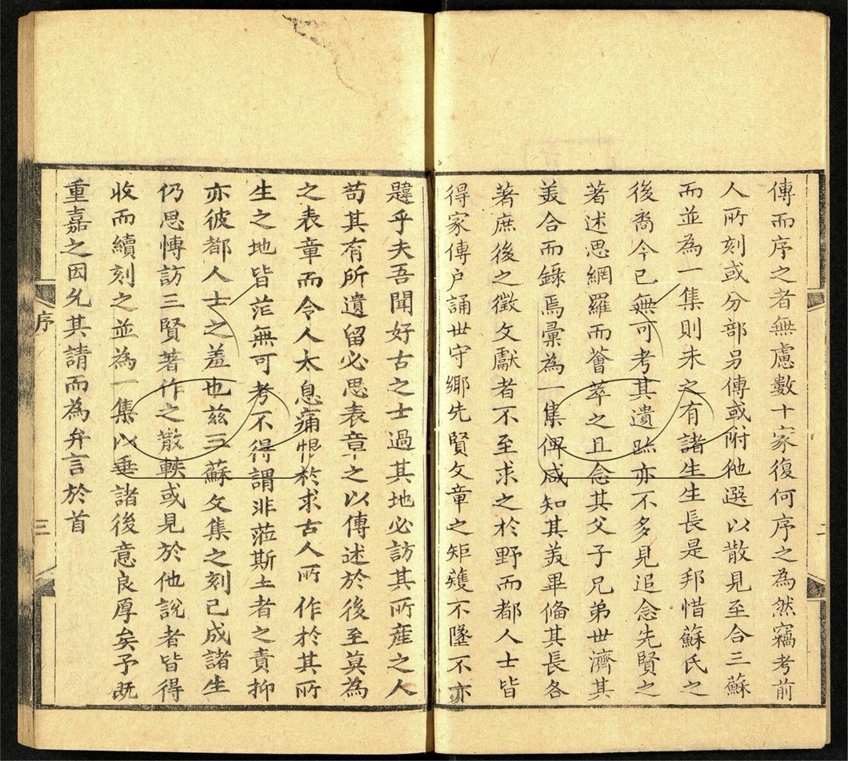 傳而序之者無慮數十家復何序之為然竊考前
人所刻或分部另傳或附他選以散見至合三蘇
而並為一集則未之有諸生生長是邦惜蘇氏之
後裔今已無可考其遺跡亦不多見追念先賢之
著述思網羅而薈萃之且念其父子兄弟世濟其
美合而錄焉彙為一集俾咸知其美畢偹其長各
著庶後之徵文獻者不至求之於野而都人士皆
得家傳户誦世守鄉先賢文章之矩矱不墜不亦
韙乎夫吾聞好古之士過其地必訪其所産之人
苟其有所遺留必思表章之以傳述於後至莫為
之表章而令人太息痛恨於求古人所作於其所
生之地皆茫無可考不得謂非蒞斯土者之責抑
亦彼都人士之羞也兹三蘇文集之刻已成諸生
仍思愽訪三賢著作之散軼或見於他說者皆得
收而續刻之並為一集以垂諸後意良厚矣予既
重嘉之因允其請而為弁言於首
序
三